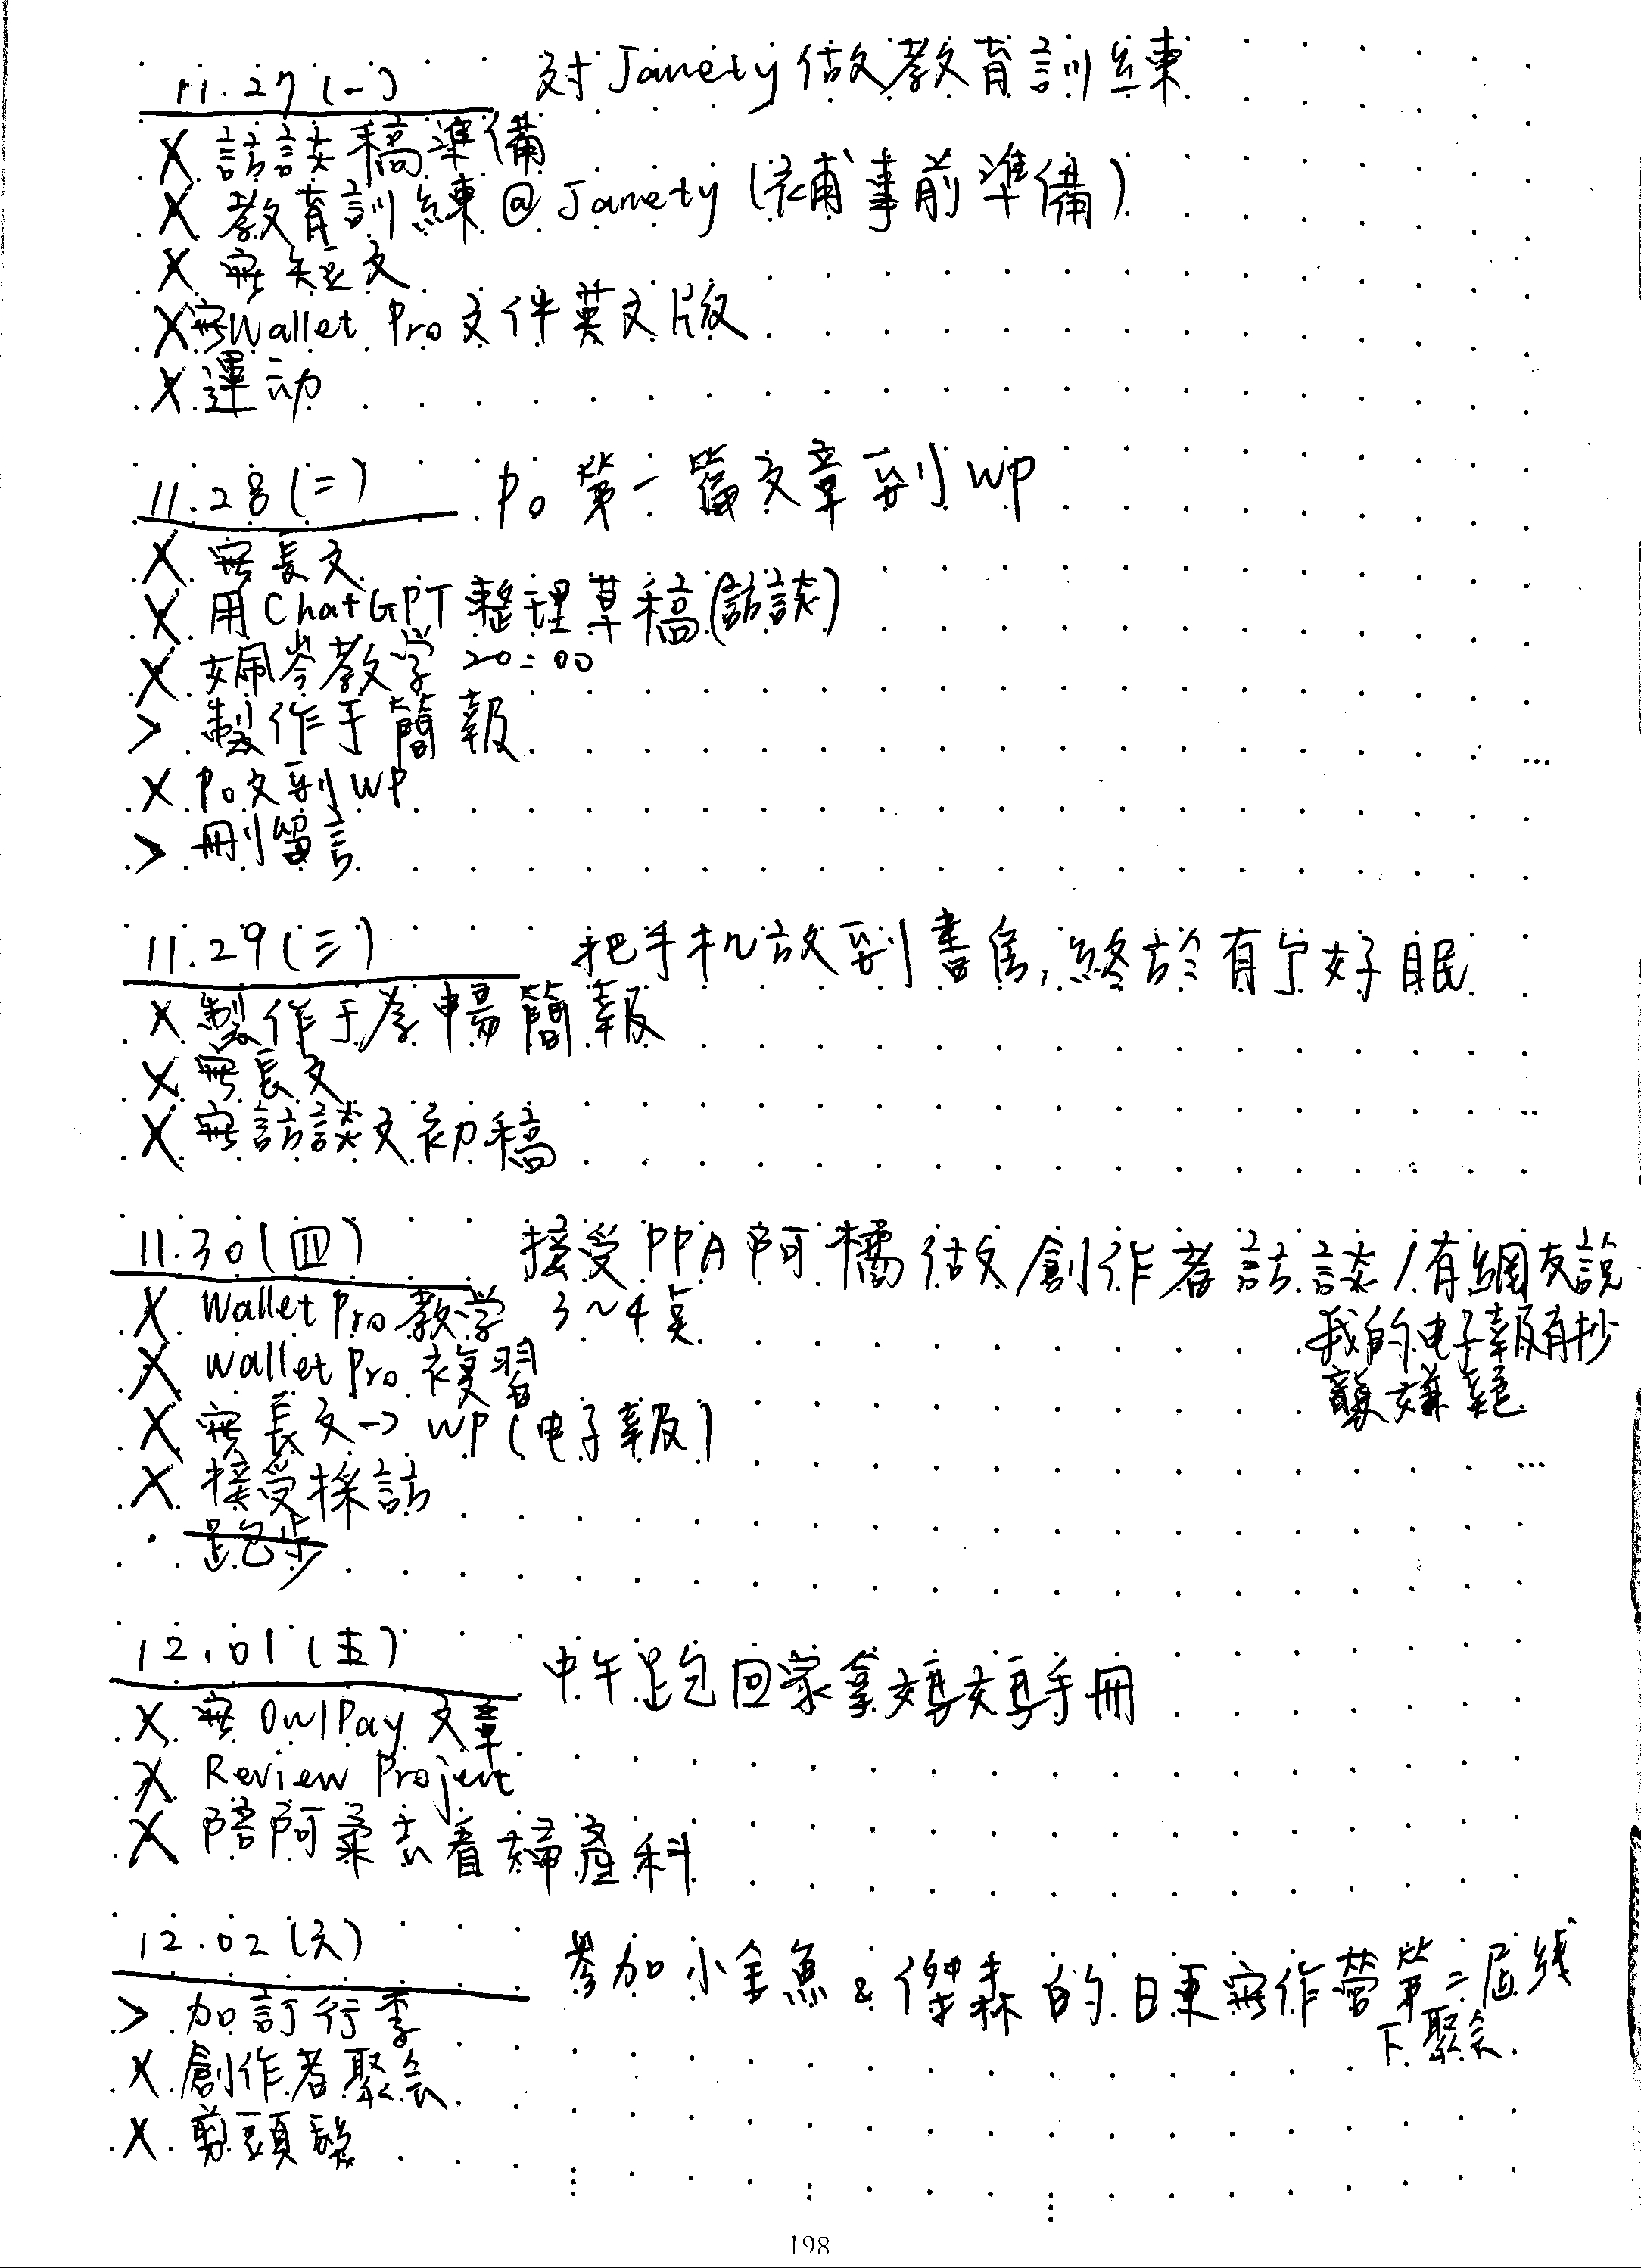 11.27(一) 対Janety做教育訓練
X 訪談稿準備
X 教育訓練@Janety(補事前準備)
X 寫短文
X 寫Wallet Pro文件英文版
X 運动
11.28(二) Po第一篇文章到WP
X 寫長文
X 用ChatGPT整理草稿(訪談)
X 姵岑教学 20:00
> 製作于簡報
X Po文到WP
> 刪留言
11.29(三) 把手机放到書房,終於有了好眠
X 製作于孝暢簡報
X 寫長文
X 寫訪談文初稿
11.30(四) 接受PPA阿橘做創作者訪談/有網友説
我的电子報有抄
襲嫌疑
X Wallet Pro教学 3~4点
X Wallet Pro複習
X 寫長文→WP(电子報)
X 接受採訪
· 跑步
12.01(五) 中午跑回家拿媽媽手冊
X 寫OwlPay文章
X Review Project
X 陪阿柔去看婦產科
12.02(六) 參加小金魚&傑森的日更寫作營第二屆线
下聚会
> 加訂行李
X 創作者聚会
X 剪頭髮
198